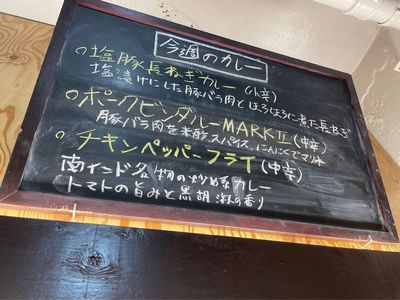 今週のカレー
○塩豚長ねぎカレー(小辛)
塩漬けにした豚バラ肉とほろほろに煮た長ねぎ
○ポークビンダルーMARKⅡ(中辛)
豚バラ肉を米酢、スパイス、にんにくでマリネ
○チキンペッパーフライ(中辛)
南インド名物の炒め系カレー
トマトの旨みと黒胡椒の香り